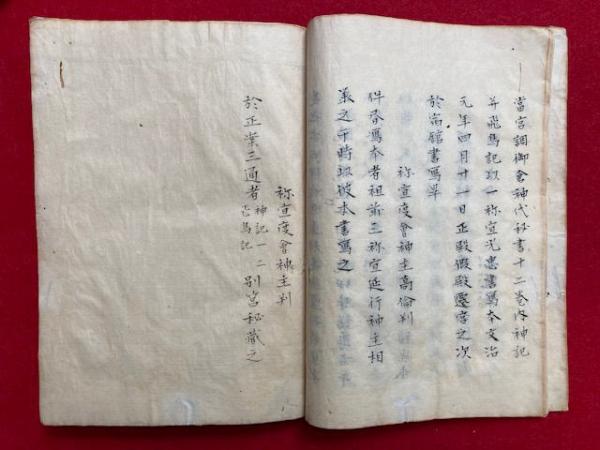 當宮調御倉神代秘書十二巻内神記
并飛鳥記取一祢宜光忠書寫本文治
元年四月廿一日正殿假殿遷宮之次
於高館書寫畢
祢宜度會神主高倫判
件卷寫本者祖父三祢宜延行神主相
承之于時取彼本書寫之
祢宜度會神主判
於正案三通者神記一二別宮秘藏之
飛鳥記